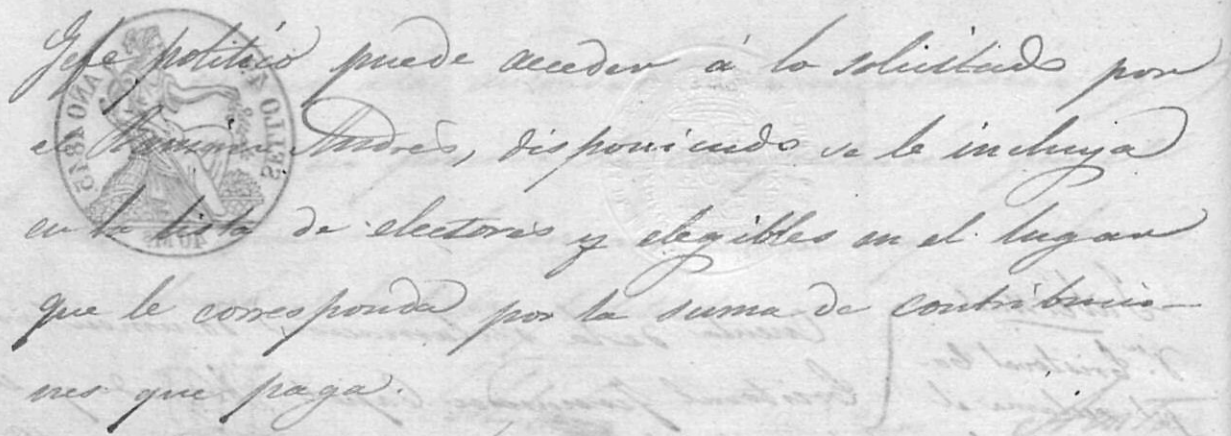 Gefe politico puede acceder á lo solicitado por
el Ramon Andrés, disponiendo se le incluya
en la lista de electores y elegibles en el lugar
que le corresponda por la suma de contribucio-
nes que paga.
SELLO 4
AÑO 1845
40 MS